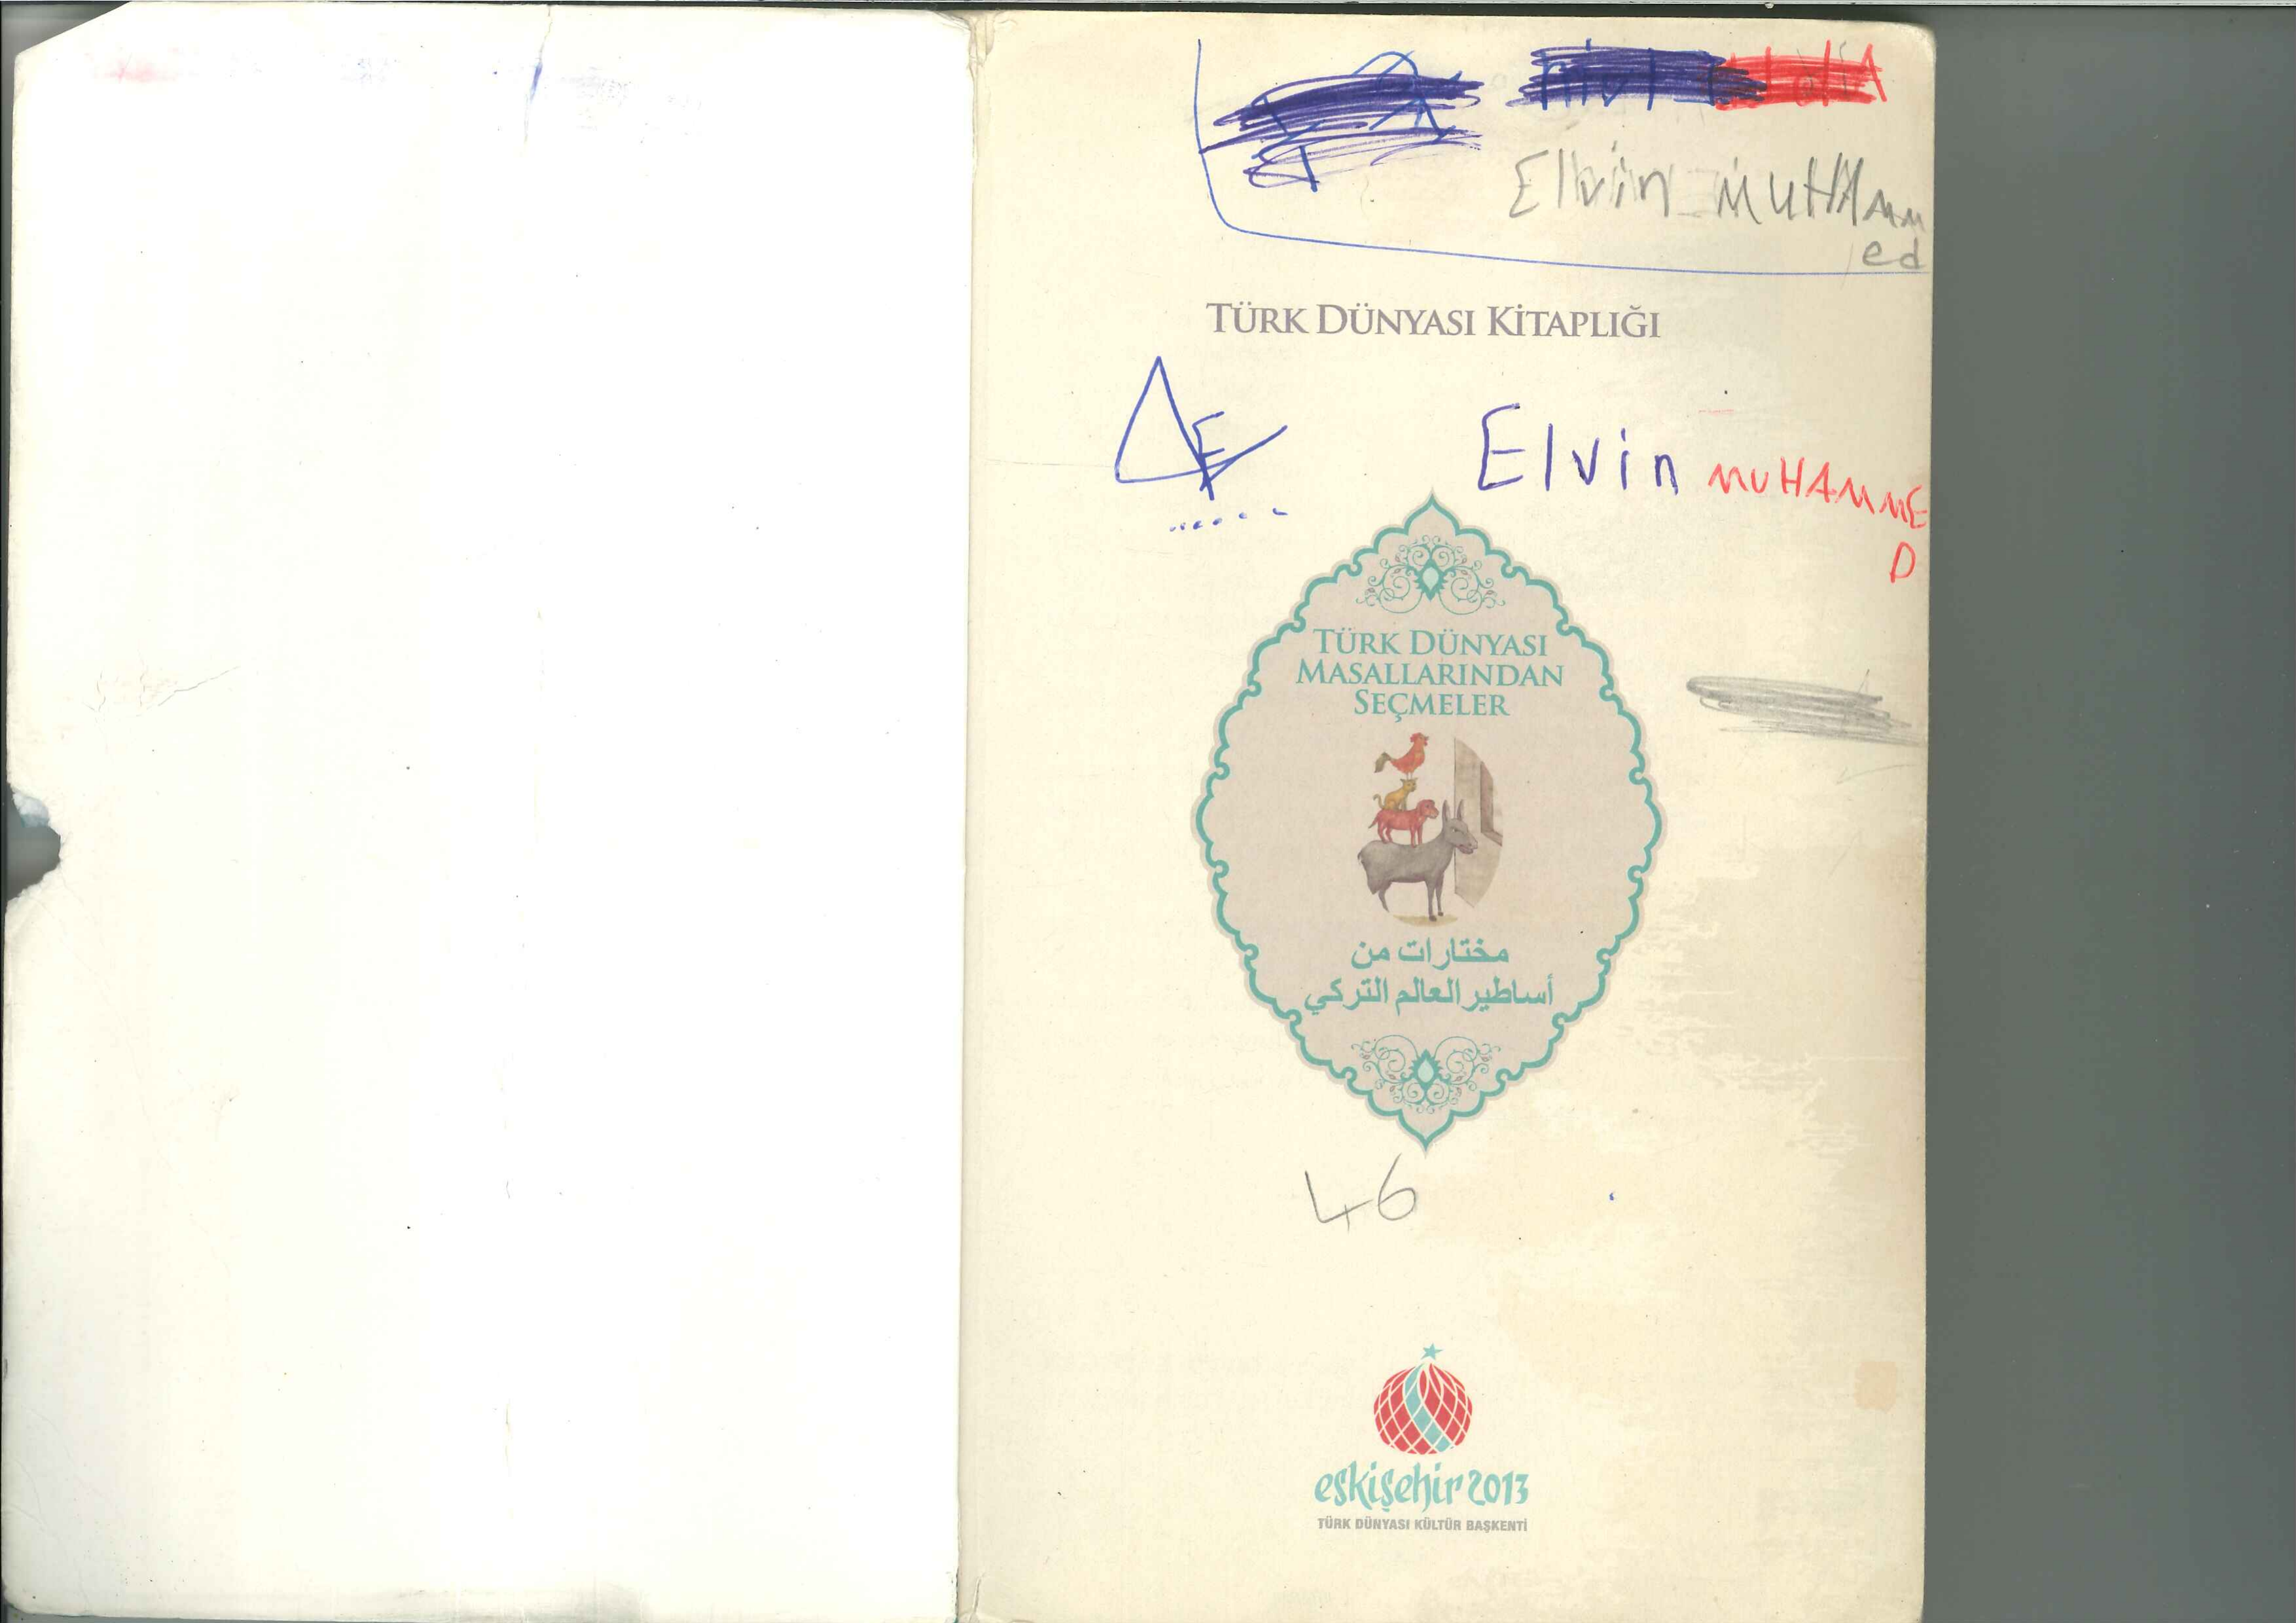 Elvin MUHAMM
ed
TÜRK DÜNYASI KİTAPLIĞI
Elvin MUHAMME
D
TÜRK DÜNYASI
MASALLARINDAN
SEÇMELER
مختارات من
أساطير العالم التركي
46
eskişehir 2013
TÜRK DÜNYASI KÜLTÜR BAŞKENTİ